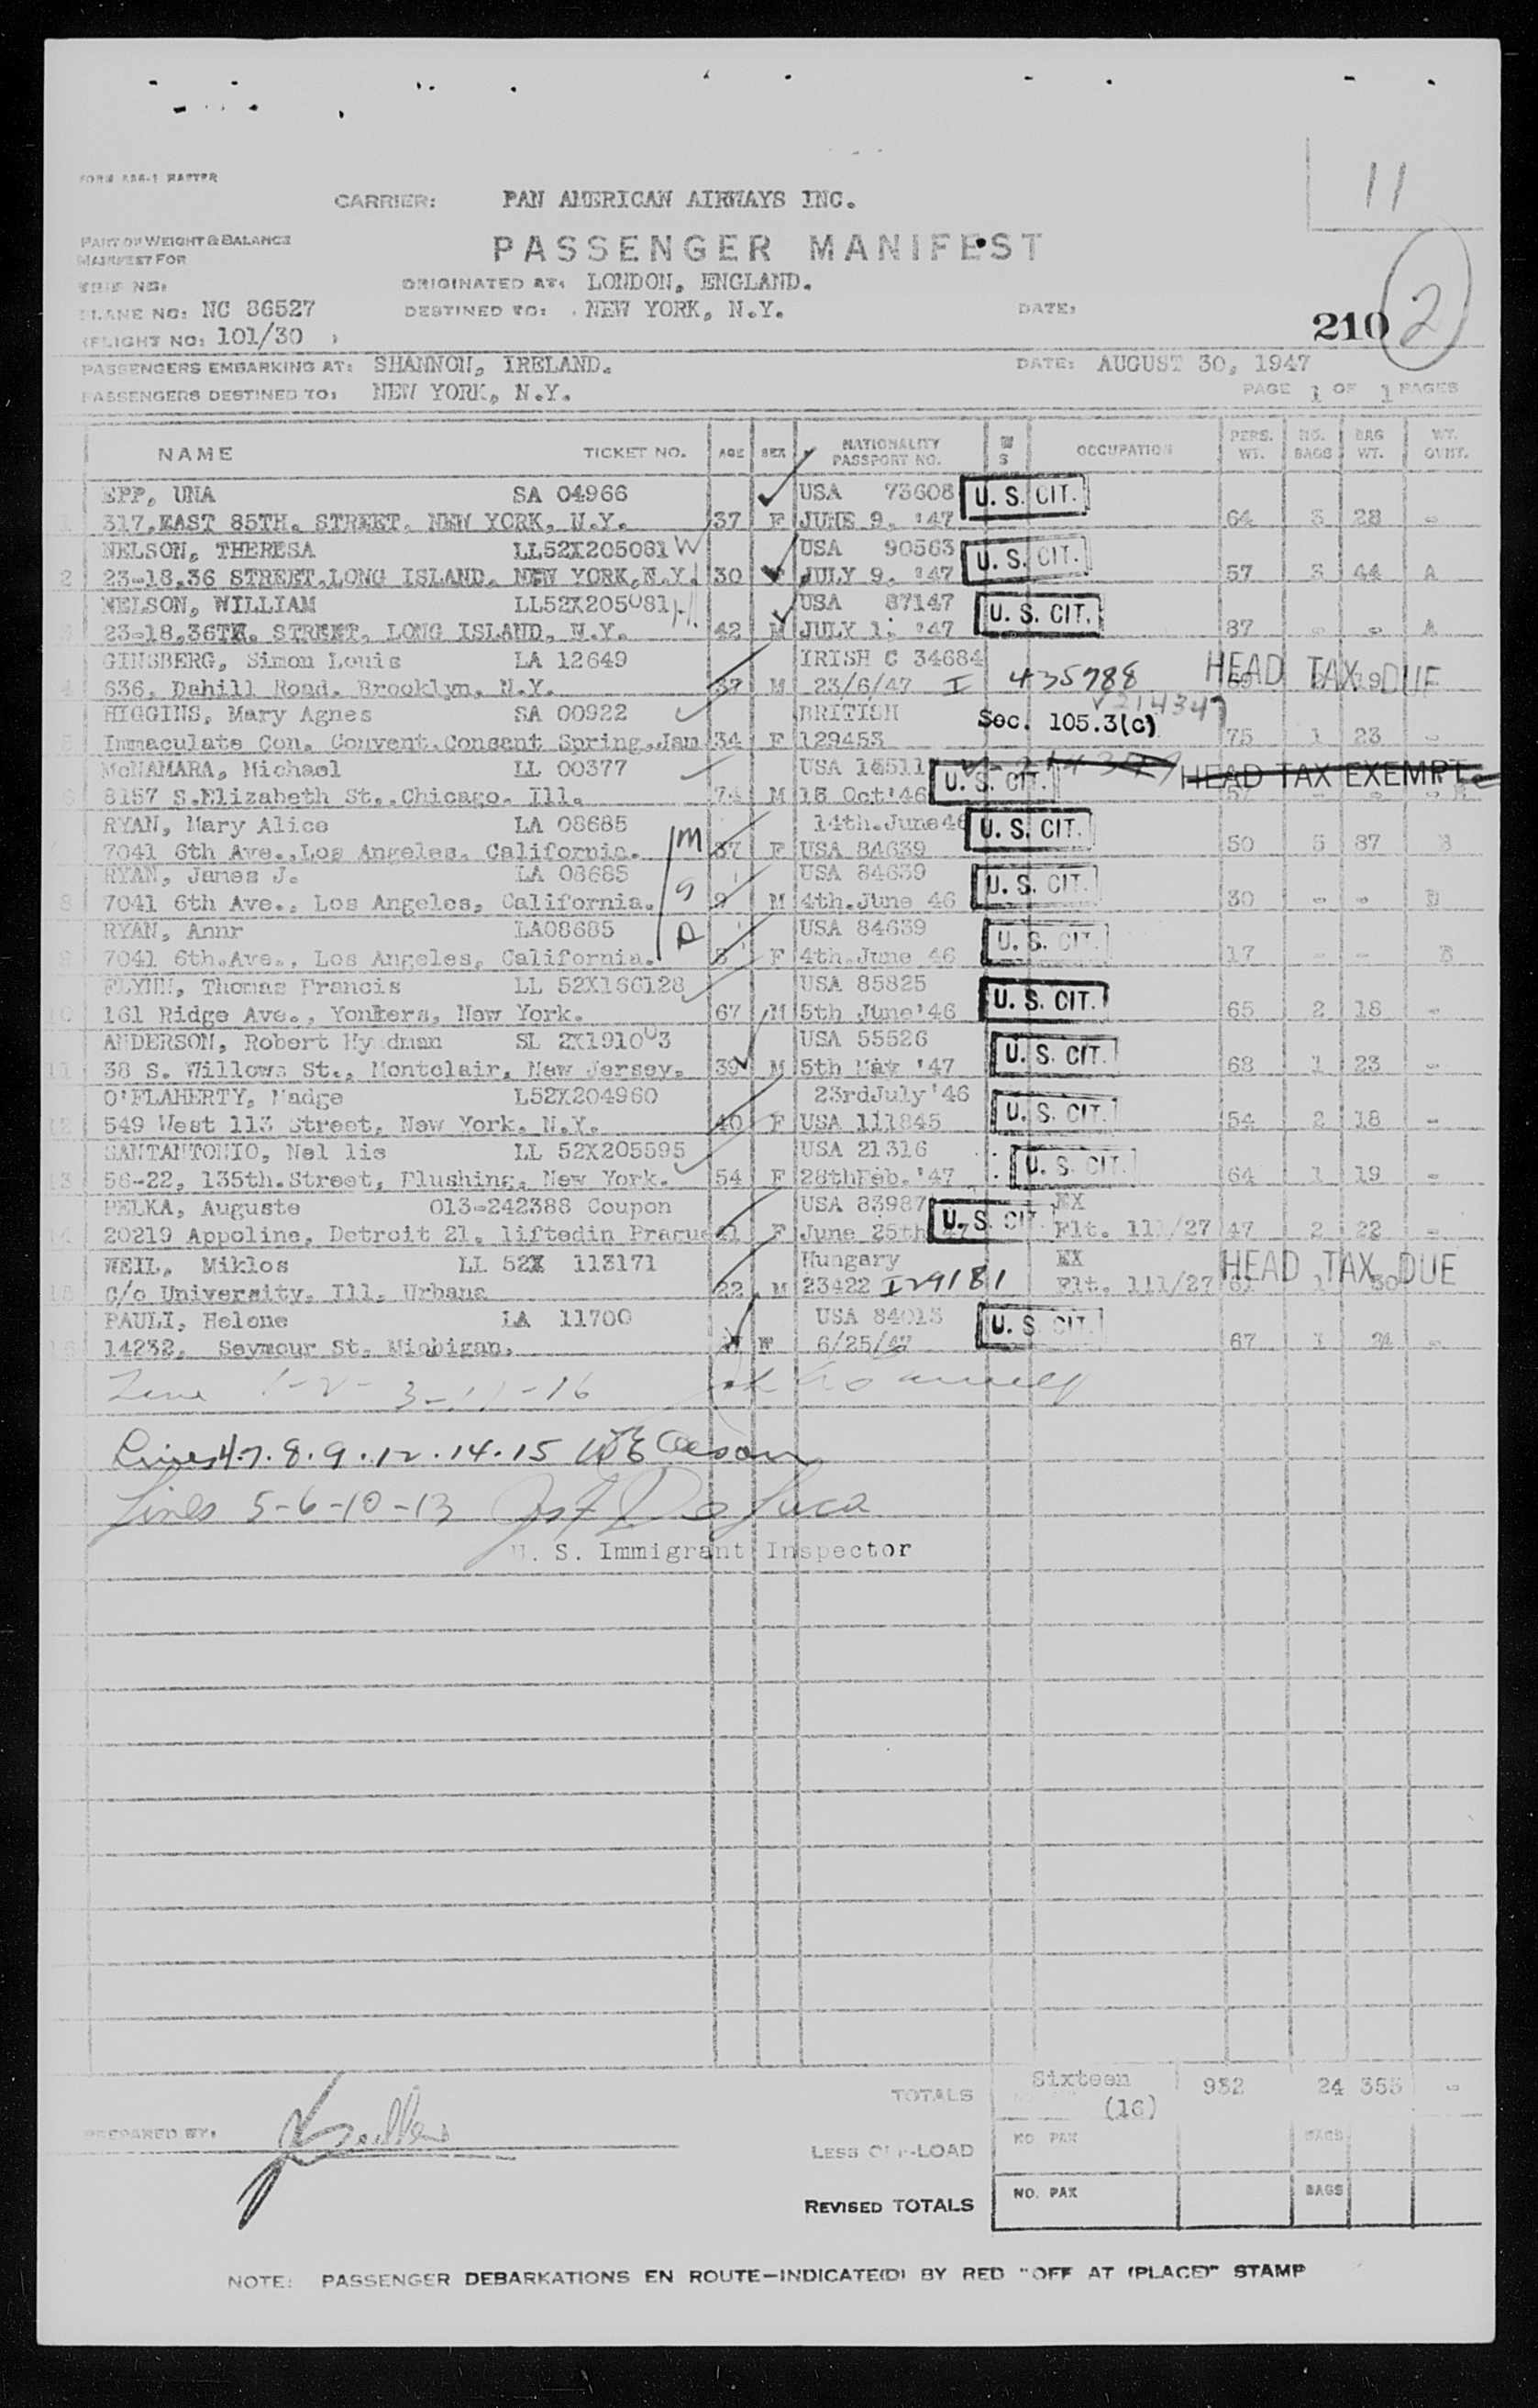 11
FORM 686-1 MASTER
CARRIER: PAN AMERICAN AIRWAYS INC.
PART OF WEIGHT & BALANCE
MANIFEST FOR
PASSENGER MANIFEST
TRIP NO:
ORIGINATED AT: LONDON, ENGLAND.
PLANE NO: NC 86527
DESTINED TO: NEW YORK, N.Y.
DATE:
210 2
FLIGHT NO: 101/30
PASSENGERS EMBARKING AT: SHANNON, IRELAND.
DATE: AUGUST 30, 1947
PASSENGERS DESTINED TO: NEW YORK, N.Y.
PAGE 1 OF 1 PAGES
NAME TICKET NO. AGE SEX NATIONALITY PASSPORT NO. W S OCCUPATION PERS. WT. NO. BAGS BAG WT. WT. OVHT.
EPP, UNA SA 04966 USA 73608 U. S. CIT.
1 317,EAST 85TH. STREET, NEW YORK, N.Y. 37 F JUNE 9, '47 64 3 28 -
NELSON, THERESA LL52X205081 W USA 90563 U. S. CIT.
2 23-18,36 STREET,LONG ISLAND, NEW YORK,N.Y. 30 JULY 9, '47 57 3 44 A
NELSON, WILLIAM LL52X205081 H. USA 87147 U. S. CIT.
3 23-18,36TH. STREET, LONG ISLAND, N.Y. 42 M JULY 1, '47 87 - - A
GINSBERG, Simon Louis LA 12649 IRISH C 34684
4 636, Dahill Road, Brooklyn, N.Y. 37 M 23/6/47 I 435788 HEAD TAX DUE
HIGGINS, Mary Agnes SA 00922 BRITISH V214347
5 Immaculate Con. Convent,Consant Spring,Jam 34 F 129453 Sec. 105.3(c) 75 1 23 -
McNAMARA, Michael LL 00377 USA 16511 U. S. CIT. HEAD TAX EXEMPT
6 8157 S.Elizabeth St.,Chicago, Ill. 74 M 15 Oct'46
RYAN, Mary Alice LA 08685 14th.June46 U. S. CIT.
7041 6th Ave.,Los Angeles, California. M 37 F USA 84639 50 5 87 B
RYAN, James J. LA 08685 USA 84639 U. S. CIT.
8 7041 6th Ave., Los Angeles, California. S 9 M 4th.June 46 30 - - B
RYAN, Annr LA08685 USA 84639 U. S. CIT.
9 7041 6th.Ave., Los Angeles, California. D 5 F 4th.June 46 17 - - B
FLYNN, Thomas Francis LL 52X166128 USA 85825 U. S. CIT.
10 161 Ridge Ave., Yonkers, New York. 67 M 5th June'46 65 2 18 -
ANDERSON, Robert Hyndman SL 2X191003 USA 55526 U. S. CIT.
11 38 S. Willows St., Montclair, New Jersey. 39 M 5th May '47 68 1 23 -
O'FLAHERTY, Madge L52X204960 23rdJuly'46 U. S. CIT.
12 549 West 113 Street, New York, N.Y. 40 F USA 111845 54 2 18 -
SANTANTONIO, Nel lie LL 52X205595 USA 21316 U. S. CIT.
13 56-22, 135th.Street, Flushing, New York. 54 F 28thFeb.'47 64 1 19 -
PELKA, Auguste 013-242388 Coupon USA 83987 U. S. CIT. EX
14 20219 Appoline, Detroit 21. liftedin Prague F June 25th 47 Flt. 111/27 47 2 22 -
WEIL, Miklos LL 52X 113171 Hungary EX HEAD TAX DUE
15 c/o University, Ill. Urbana 22 M 23422 I29181 Flt. 111/27 61 1 30
PAULI, Helene LA 11700 USA 84013 U. S. CIT.
16 14232, Seymour St. Michigan. F 6/25/47 67 1 24 -
Line 1-2-3-11-16
Lines 4.7.8.9.12.14.15
Lines 5-6-10-13 Jos F De Luca
U. S. Immigrant Inspector
TOTALS Sixteen (16) 932 24 355 -
PREPARED BY:
LESS OFF-LOAD NO PAX BAGS
REVISED TOTALS NO. PAX BAGS
NOTE: PASSENGER DEBARKATIONS EN ROUTE-INDICATE(D) BY RED "OFF AT (PLACE)" STAMP